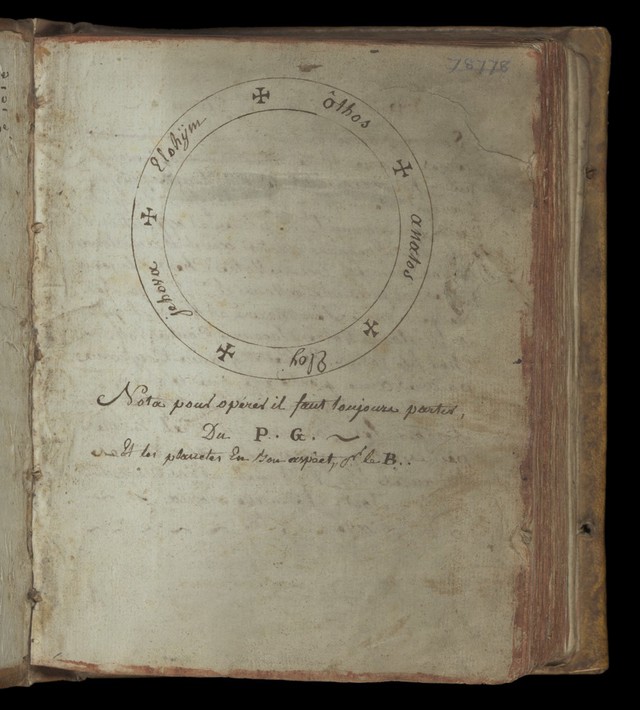 ✠ ôthos ✠ anatos ✠ Eloy ✠ Jehova ✠ Elohÿm
Nota pour operer il faut toujours partir,
Du P. G. ~
Et les planetes En bon aspect, pr le B..